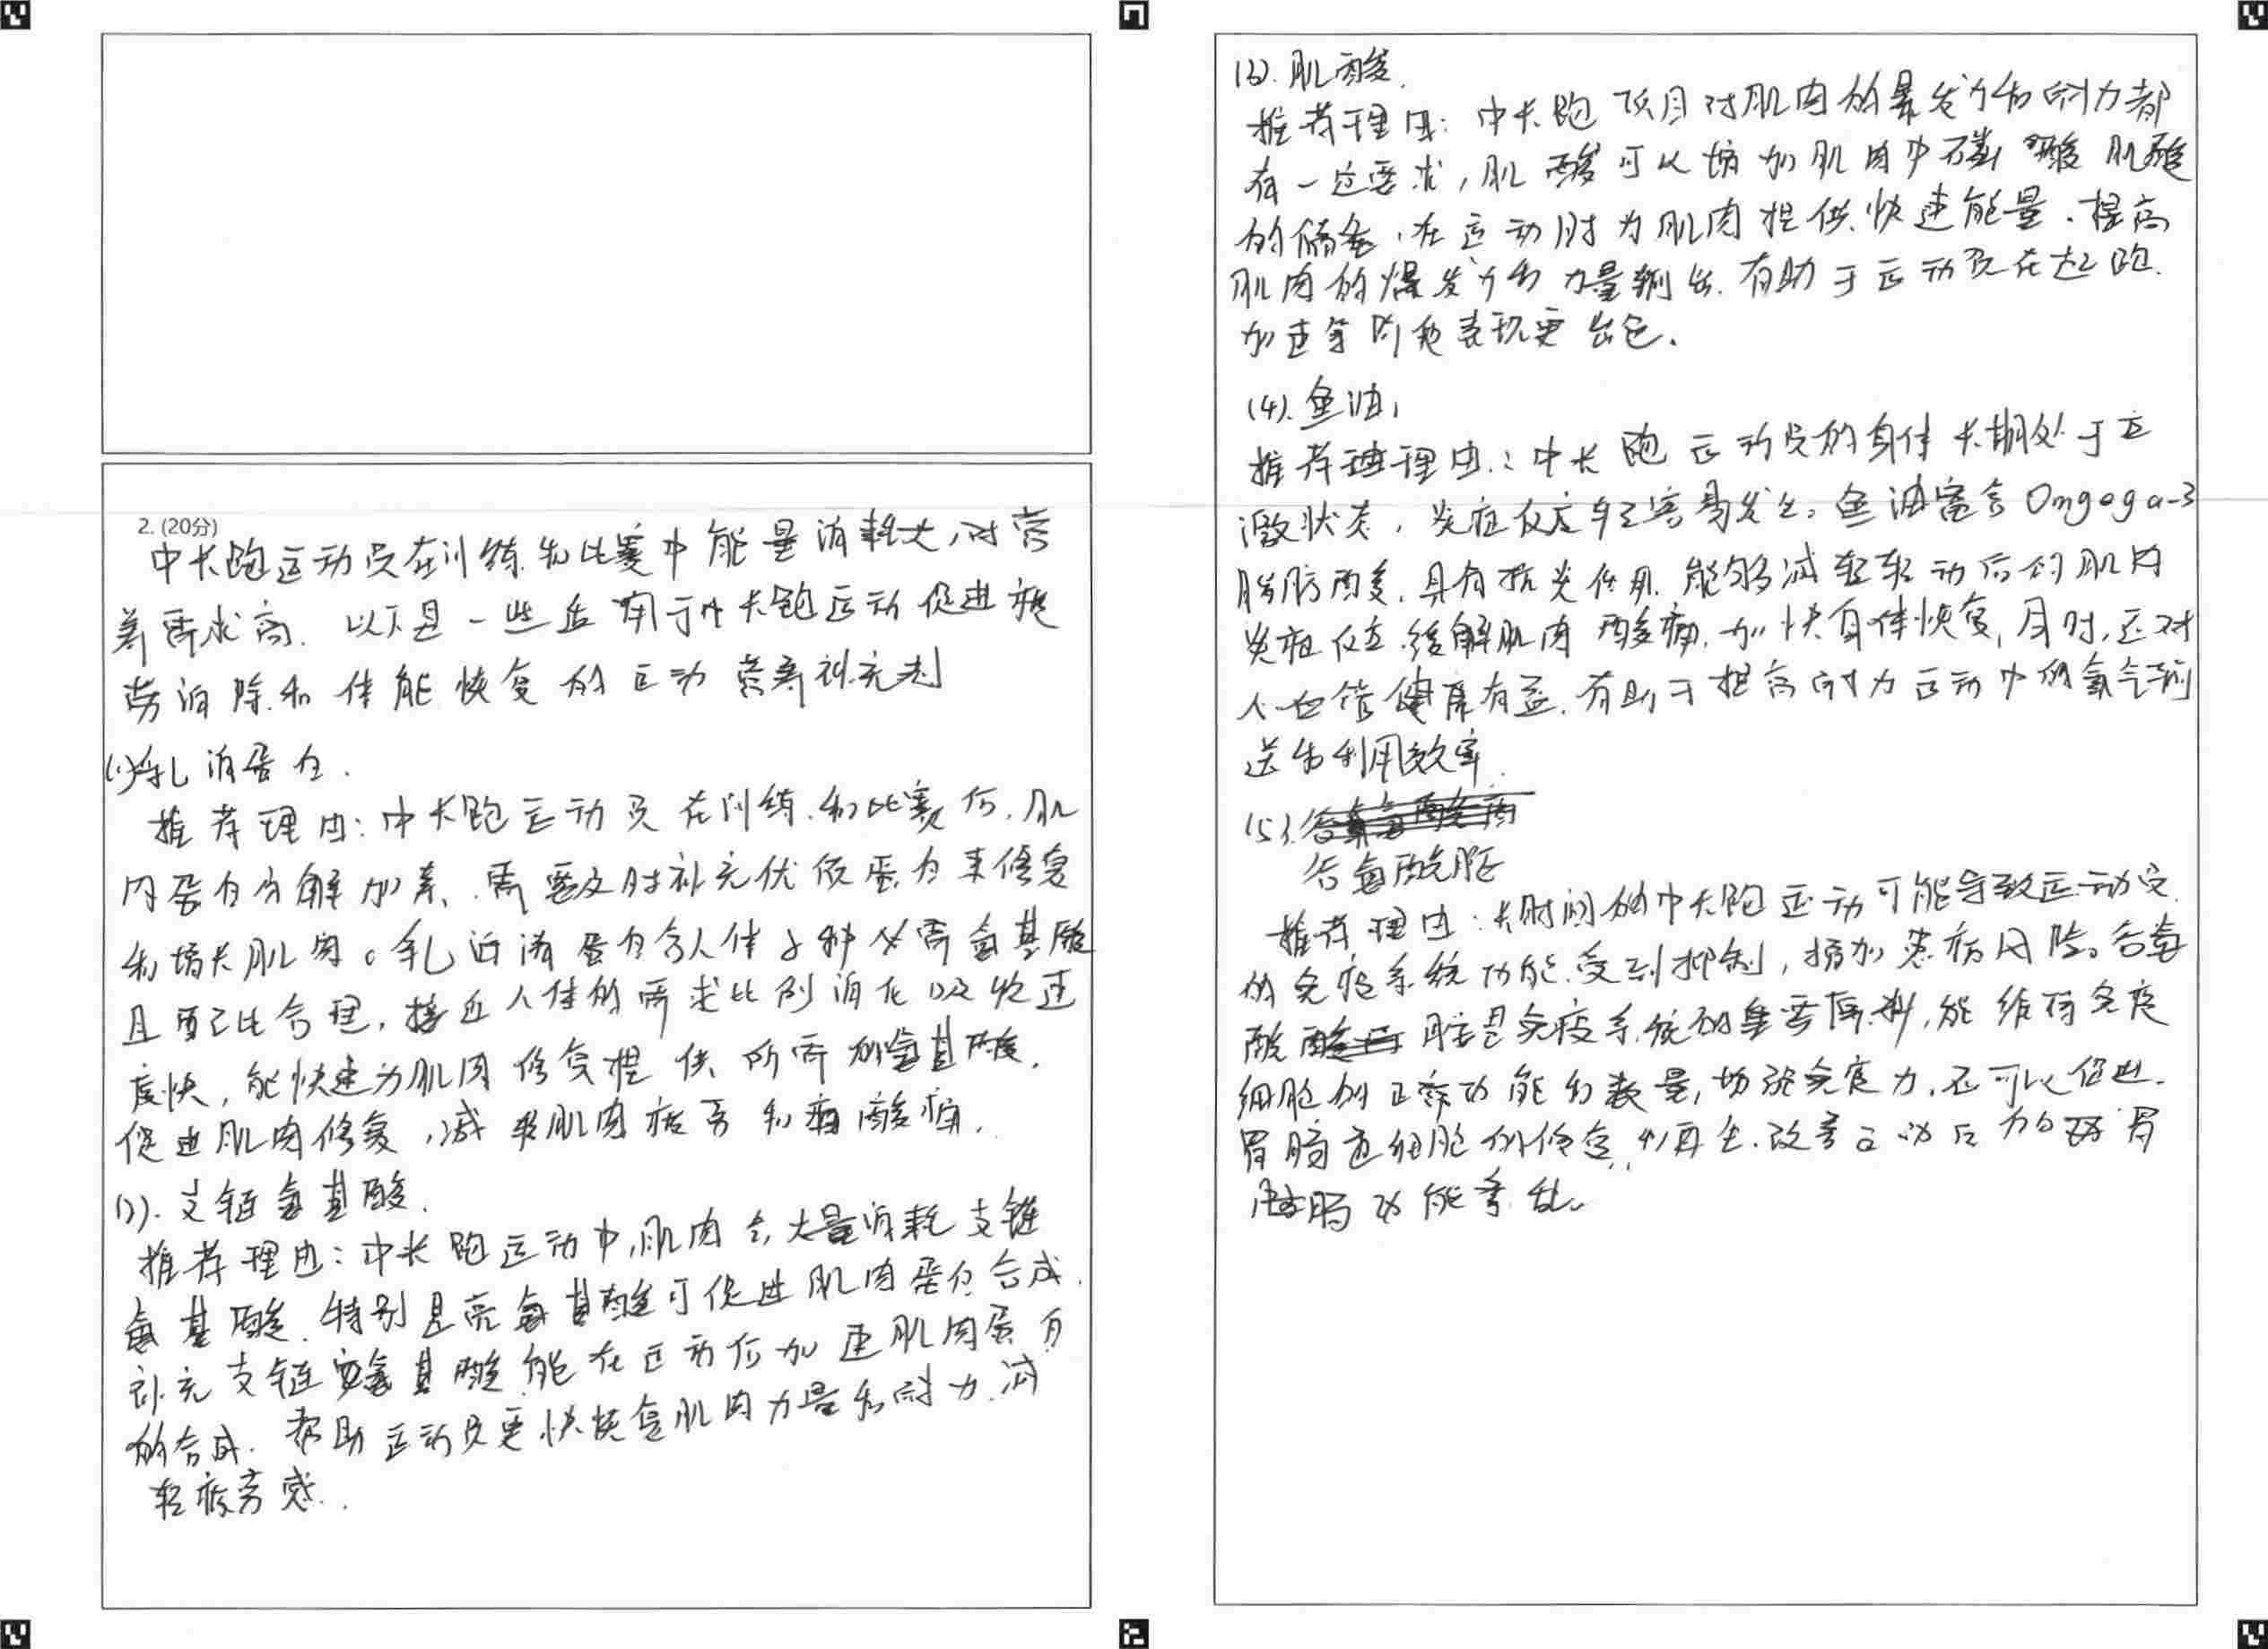 2. (20分)
中长跑运动员在训练和比赛中能量消耗大,对营
养需求高. 以下是一些适用于中长跑运动促进疲
劳消除和体能恢复的运动营养补充剂
(1)乳清蛋白.
推荐理由:中长跑运动员在训练和比赛后,肌
肉蛋白分解加素、需要及时补充优质蛋白来修复
和增长肌肉。乳清蛋白含人体多种必需氨基酸
且配比合理,接近人体的需求比例消化吸收速
度快,能快速为肌肉修复提供所需的氨基酸,
促进肌肉修复,减轻肌肉疲劳和酸痛.
(2).支链氨基酸.
推荐理由:中长跑运动中,肌肉会大量消耗支链
氨基酸.特别是亮氨基酸可促进肌肉蛋白合成.
补充支链氨基酸能在运动后加速肌肉蛋白
的合成.帮助运动员更快恢复肌肉力量和耐力.减
轻疲劳感.
(3).肌酸.
推荐理由:中长跑项目对肌肉的暴发力和耐力都
有一定要求,肌酸可以增加肌肉中磷酸肌酸
的储备,在运动时为肌肉提供快速能量.提高
肌肉的爆发力和力量输出.有助于运动员在起跑.
加速等阶段表现更出色.
(4).鱼油,
推荐理由:中长跑运动员的身体长期处于应
激状态,炎症反应较容易发生。鱼油富含Omgega-3
脂肪酸,具有抗炎作用.能够减轻运动后的肌肉
炎症反应.缓解肌肉酸痛.加快身体恢复,同时,还对
心血管健康有益.有助于提高耐力运动中的氧气输
送和利用效率.
(5).
谷氨酰胺
推荐理由:长时间的中长跑运动可能导致运动员
的免疫系统功能受到抑制,增加患病风险。谷氨
酰胺是免疫系统的重要原料,能维持免疫
细胞的正常功能和数量,增强免疫力.还可以促进.
胃肠道细胞的修复和再生.改善运动后的胃
肠功能紊乱。